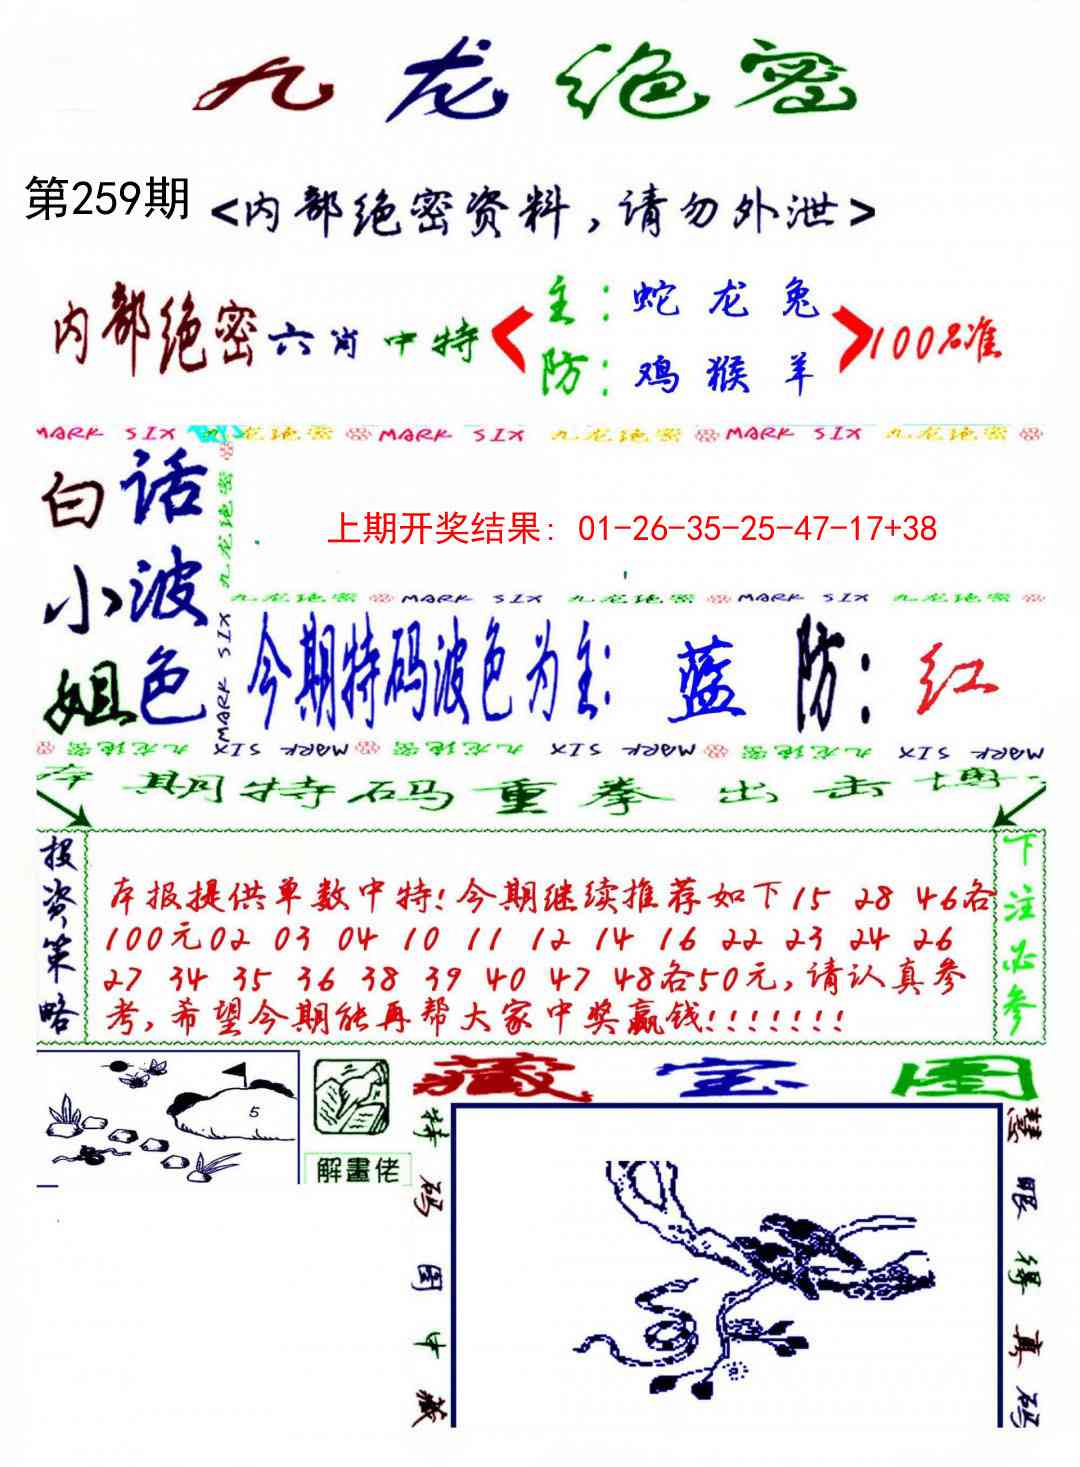 九龙绝密
第259期 <内部绝密资料，请勿外泄>
内部绝密六肖中特
主：蛇 龙 兔
防：鸡 猴 羊
100%准
MARK SIX 九龙绝密 MARK SIX 九龙绝密 MARK SIX 九龙绝密
白小姐
话波色
九龙绝密
MARK SIX
上期开奖结果: 01-26-35-25-47-17+38
九龙绝密 MARK SIX 九龙绝密 MARK SIX 九龙绝密
今期特码波色为主: 蓝 防: 红
九龙绝密 MARK SIX 九龙绝密 MARK SIX 九龙绝密 MARK SIX
本期特码重拳出击博
投资策略
本报提供单数中特!今期继续推荐如下15 28 46各
100元02 03 04 10 11 12 14 16 22 23 24 26
27 34 35 36 38 39 40 47 48各50元,请认真参
考,希望今期能再帮大家中奖赢钱!!!!!!!
下注必参
5
解畫佬
藏宝图
特码图中藏
慧眼得真码